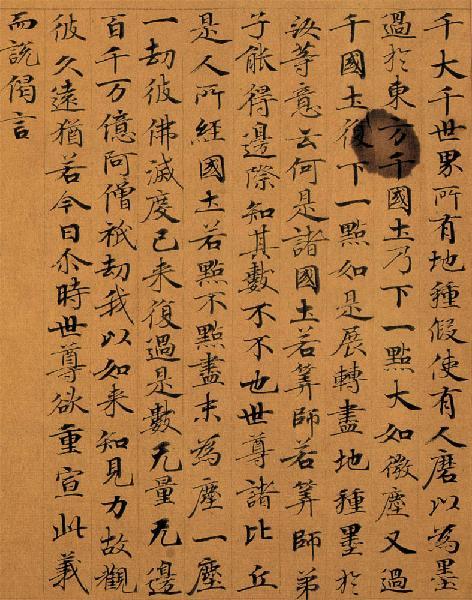 千大千世界所有地種假使有人磨以為墨
過於東方千國土乃下一點大如微塵又過
千國土復下一點如是展轉盡地種墨於
汝等意云何是諸國土若筭師若筭師弟
子能得邊際知其數不不也世尊諸比丘
是人所經國土若點不點盡末為塵一塵
一劫彼佛滅度已来復過是數无量无邊
百千万億阿僧祇劫我以如来知見力故觀
彼久遠猶若今日尒時世尊欲重宣此義
而說偈言